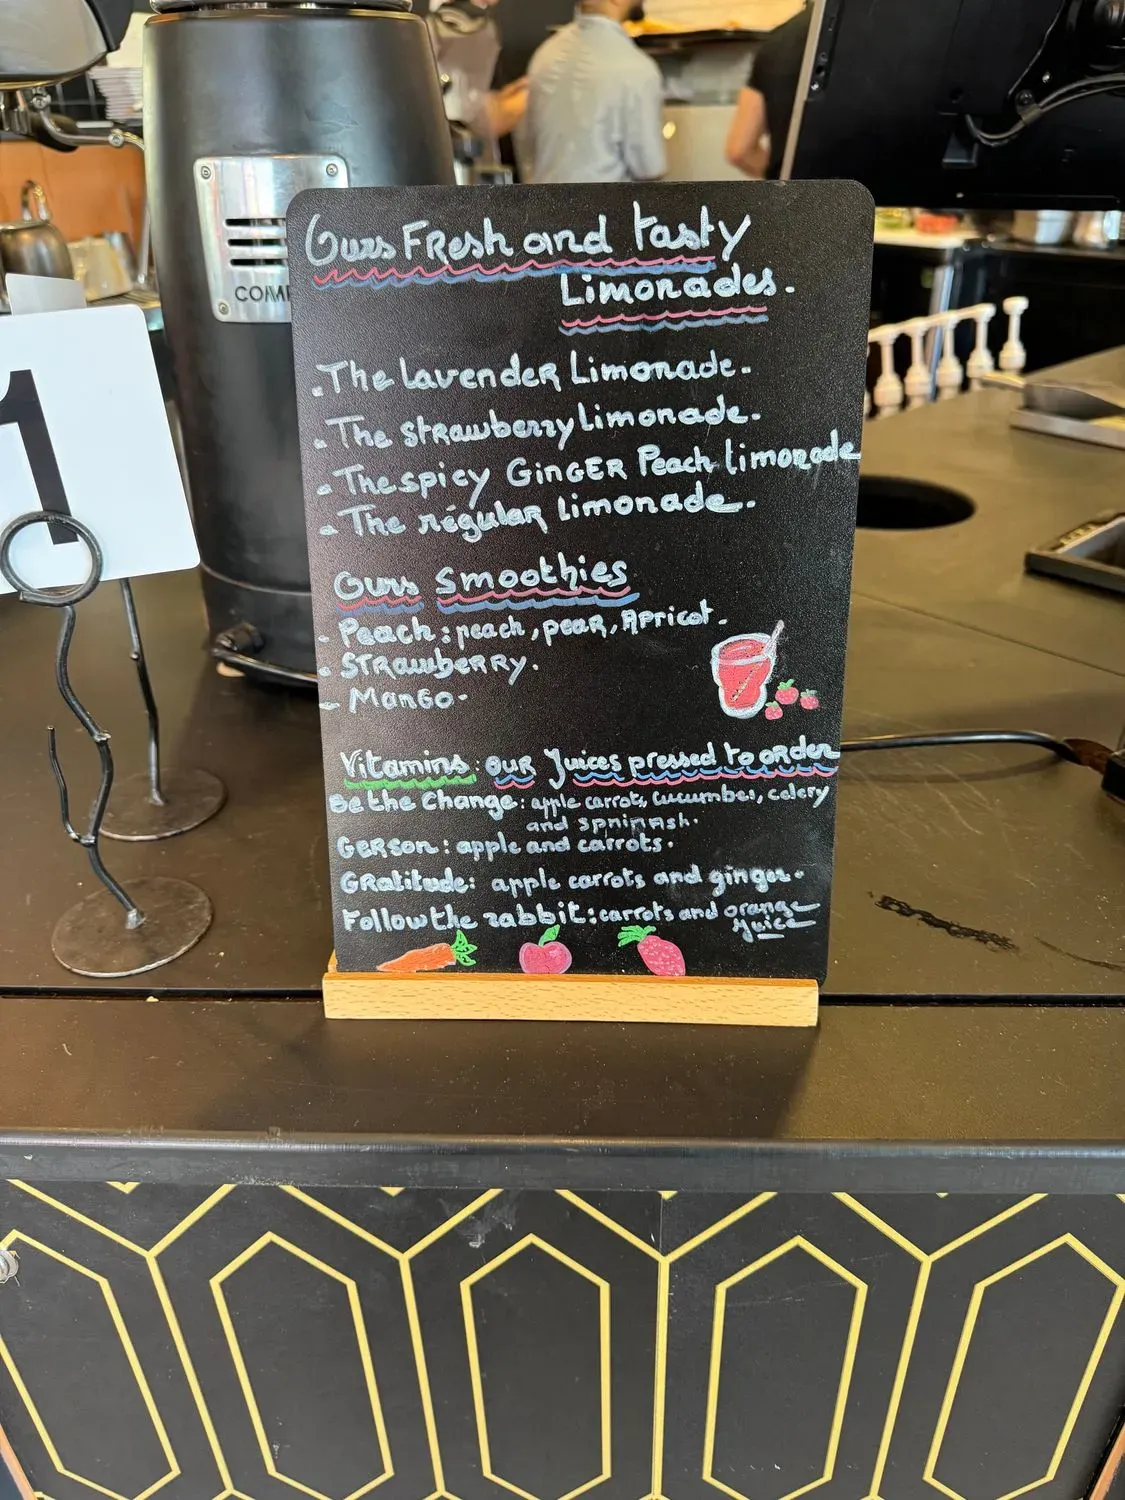 Ours Fresh and tasty
Limonades.
- The lavender Limonade.
- The strawberry limonade.
- The spicy Ginger Peach limonade
- The régular limonade.
Ours Smoothies
- Peach: peach, pear, Apricot.
- Strawberry.
- Mango.
Vitamins: our Juices pressed to order
Be the Change: apple carrots, cucumber, celery
and spninash.
Gerson: apple and carrots.
Gratitude: apple carrots and ginger.
Follow the rabbit: carrots and orange
juice
1